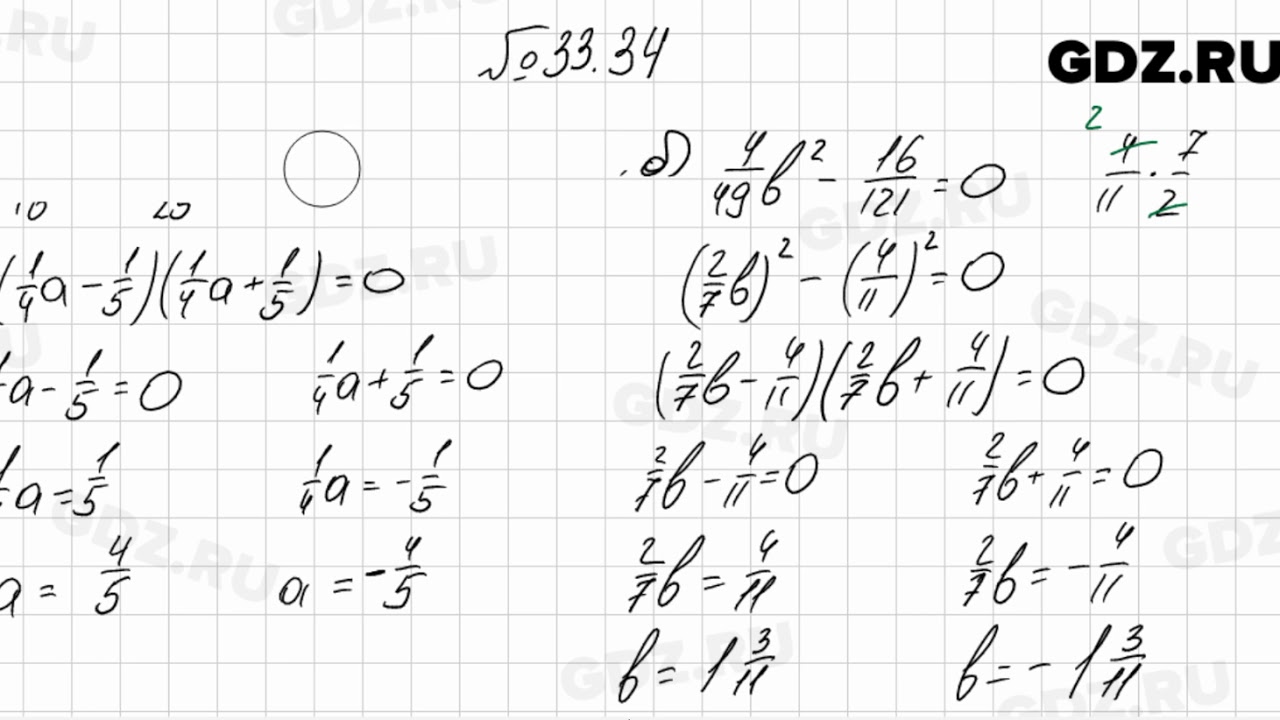 № 33.34
GDZ.RU
(1/4 a - 1/5)(1/4 a + 1/5) = 0
a - 1/5 = 0
1/4 a + 1/5 = 0
a = 1/5
1/4 a = - 1/5
a = 4/5
a = - 4/5
б) 4/49 b² - 16/121 = 0
2
4/11 · 7/2
(2/7 b)² - (4/11)² = 0
(2/7 b - 4/11)(2/7 b + 4/11) = 0
2/7 b - 4/11 = 0
2/7 b + 4/11 = 0
2/7 b = 4/11
2/7 b = - 4/11
b = 1 3/11
b = - 1 3/11